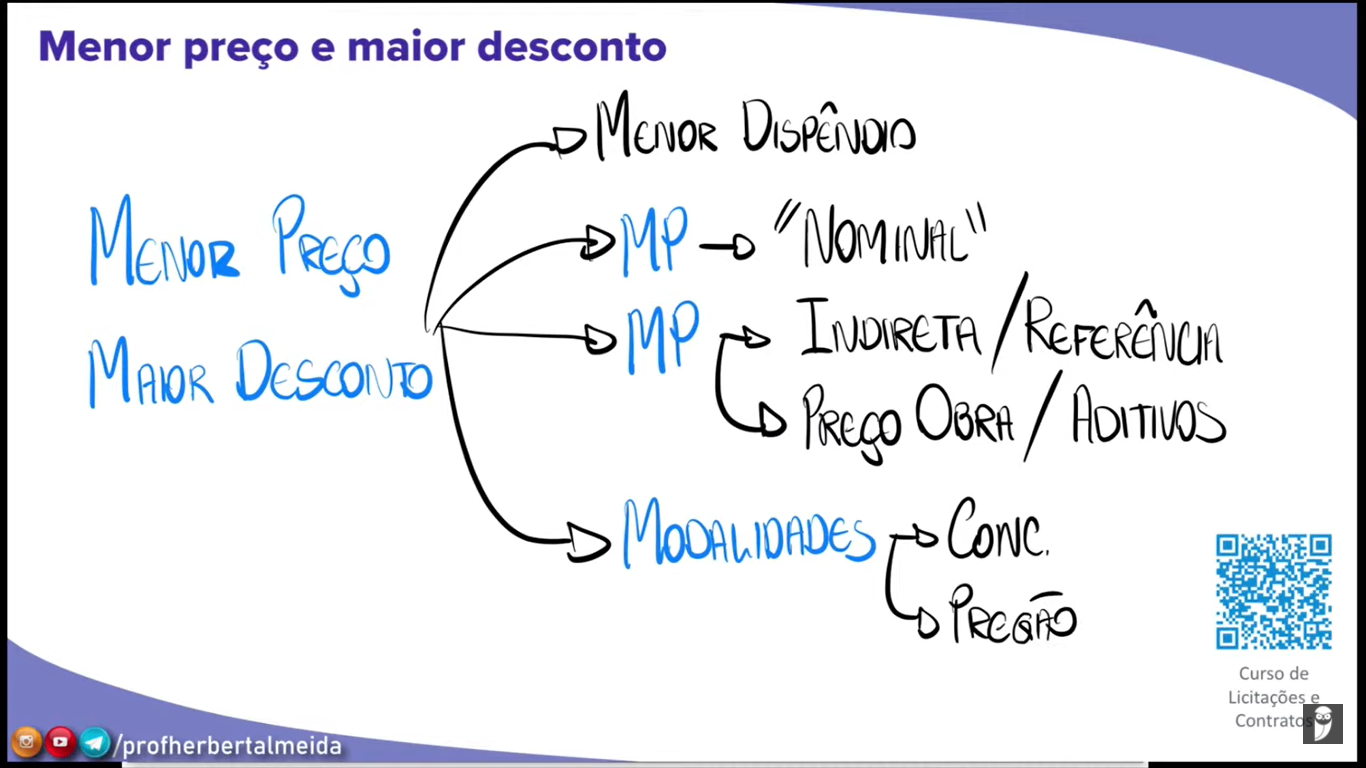 Menor preço e maior desconto
MENOR DISPÊNDIO
MENOR PREÇO
MP "NOMINAL"
MAIOR DESCONTO
MP INDIRETA / REFERÊNCIA
PREÇO OBRA / ADITIVOS
MODALIDADES CONC.
PREGÃO
Curso de
Licitações e
Contratos
/profherbertalmeida